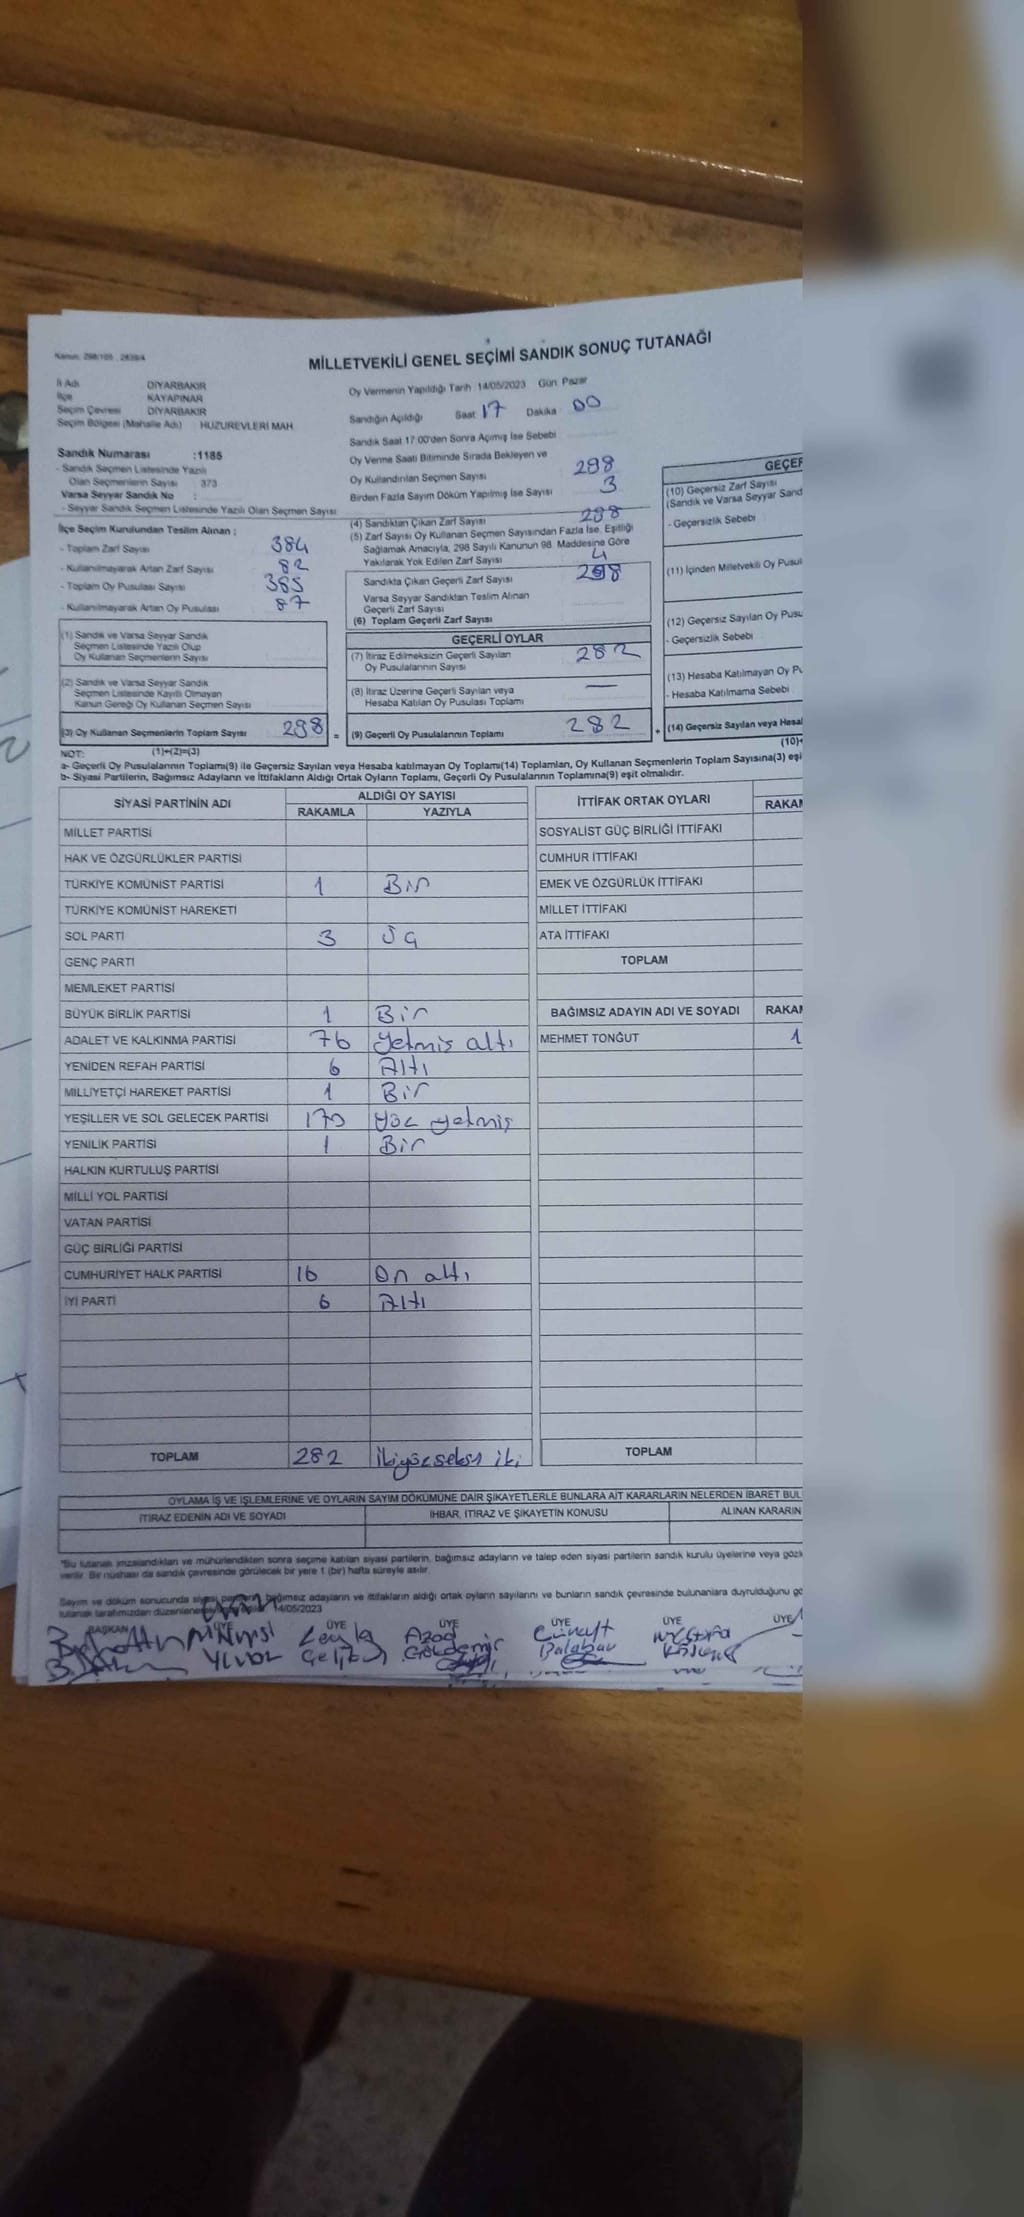 MİLLETVEKİLİ GENEL SEÇİMİ SANDIK SONUÇ TUTANAĞI
İl Adı DİYARBAKIR
İlçe KAYAPINAR
Seçim Çevresi DİYARBAKIR
Seçim Bölgesi (Mahalle Adı) HUZUREVLERİ MAH
Sandık Numarası :1185
- Sandık Seçmen Listesinde Yazılı
Olan Seçmenlerin Sayısı 373
Varsa Seyyar Sandık No :
- Seyyar Sandık Seçmen Listesinde Yazılı Olan Seçmen Sayısı
Oy Vermenin Yapıldığı Tarih 14/05/2023 Gün Pazar
Sandığın Açıldığı Saat 17 Dakika 00
Sandık Saat 17:00'den Sonra Açımış İse Sebebi
Oy Verme Saati Bitiminde Sırada Bekleyen ve
Oy Kullandırılan Seçmen Sayısı 298
Birden Fazla Sayım Döküm Yapılmış İse Sayısı 3
İlçe Seçim Kurulundan Teslim Alınan ;
- Toplam Zarf Sayısı 384
- Kullanılmayarak Artan Zarf Sayısı 82
- Toplam Oy Pusulası Sayısı 385
- Kullanılmayarak Artan Oy Pusulası 87
(4) Sandıktan Çıkan Zarf Sayısı 298
(5) Zarf Sayısı Oy Kullanan Seçmen Sayısından Fazla İse, Eşitliği
Sağlamak Amacıyla, 298 Sayılı Kanunun 98. Maddesine Göre
Yakılarak Yok Edilen Zarf Sayısı 4
Sandıkta Çıkan Geçerli Zarf Sayısı 298
Varsa Seyyar Sandıktan Teslim Alınan
Geçerli Zarf Sayısı
(6) Toplam Geçerli Zarf Sayısı
(1) Sandık ve Varsa Seyyar Sandık
Seçmen Listesinde Yazılı Olup
Oy Kullanan Seçmenlerin Sayısı
(2) Sandık ve Varsa Seyyar Sandık
Seçmen Listesinde Kayıtlı Olmayan
Kanun Gereği Oy Kullanan Seçmen Sayısı
(3) Oy Kullanan Seçmenlerin Toplam Sayısı 298 =
(1)+(2)=(3)
GEÇERLİ OYLAR
(7) İtiraz Edilmeksizin Geçerli Sayılan
Oy Pusulalarının Sayısı 282
(8) İtiraz Üzerine Geçerli Sayılan veya
Hesaba Katılan Oy Pusulası Toplamı —
(9) Geçerli Oy Pusulalarının Toplamı 282 +
GEÇER
(10) Geçersiz Zarf Sayısı
(Sandık ve Varsa Seyyar Sand
- Geçersizlik Sebebi
(11) İçinden Milletvekili Oy Pusul
(12) Geçersiz Sayılan Oy Pusu
- Geçersizlik Sebebi
(13) Hesaba Katılmayan Oy Pu
- Hesaba Katılmama Sebebi
(14) Geçersiz Sayılan veya Hesal
(10)+
NOT:
a- Geçerli Oy Pusulalarının Toplamı(9) ile Geçersiz Sayılan veya Hesaba katılmayan Oy Toplamı(14) Toplamları, Oy Kullanan Seçmenlerin Toplam Sayısına(3) eşi
b- Siyasi Partilerin, Bağımsız Adayların ve İttifakların Aldığı Ortak Oyların Toplamı, Geçerli Oy Pusulalarının Toplamına(9) eşit olmalıdır.
SİYASİ PARTİNİN ADI ALDIĞI OY SAYISI
RAKAMLA YAZIYLA
MİLLET PARTİSİ
HAK VE ÖZGÜRLÜKLER PARTİSİ
TÜRKİYE KOMÜNİST PARTİSİ 1 Bir
TÜRKİYE KOMÜNİST HAREKETİ
SOL PARTİ 3 Üç
GENÇ PARTİ
MEMLEKET PARTİSİ
BÜYÜK BİRLİK PARTİSİ 1 Bir
ADALET VE KALKINMA PARTİSİ 76 yetmiş altı
YENİDEN REFAH PARTİSİ 6 Altı
MİLLİYETÇİ HAREKET PARTİSİ 1 Bir
YEŞİLLER VE SOL GELECEK PARTİSİ 170 yüz yetmiş
YENİLİK PARTİSİ 1 Bir
HALKIN KURTULUŞ PARTİSİ
MİLLİ YOL PARTİSİ
VATAN PARTİSİ
GÜÇ BİRLİĞİ PARTİSİ
CUMHURİYET HALK PARTİSİ 16 On altı
İYİ PARTİ 6 Altı
TOPLAM 282 İkiyüz seksen iki
İTTİFAK ORTAK OYLARI
RAKAM
SOSYALİST GÜÇ BİRLİĞİ İTTİFAKI
CUMHUR İTTİFAKI
EMEK VE ÖZGÜRLÜK İTTİFAKI
MİLLET İTTİFAKI
ATA İTTİFAKI
TOPLAM
BAĞIMSIZ ADAYIN ADI VE SOYADI RAKAM
MEHMET TONĞUT 1
TOPLAM
OYLAMA İŞ VE İŞLEMLERİNE VE OYLARIN SAYIM DÖKÜMÜNE DAİR ŞİKAYETLERLE BUNLARA AİT KARARLARIN NELERDEN İBARET BUL
İTİRAZ EDENİN ADI VE SOYADI İHBAR, İTİRAZ VE ŞİKAYETİN KONUSU ALINAN KARARIN
*Bu tutanak imzalandıktan ve mühürlendikten sonra seçime katılan siyasi partilerin, bağımsız adayların ve talep eden siyasi partilerin sandık kurulu üyelerine veya gözl
verilir. Bir nüshası da sandık çevresinde görülecek bir yere 1 (bir) hafta süreyle asılır.
Sayım ve döküm sonucunda siyasi partilerin, bağımsız adayların ve ittifakların aldığı ortak oyların sayılarını ve bunların sandık çevresinde bulunanlara duyrulduğunu gö
tutanak tarafımızdan düzenlenerek 14/05/2023
BAŞKAN ÜYE ÜYE ÜYE ÜYE ÜYE ÜYE
Leyla Azad Cüneyt
Çelik Balaban